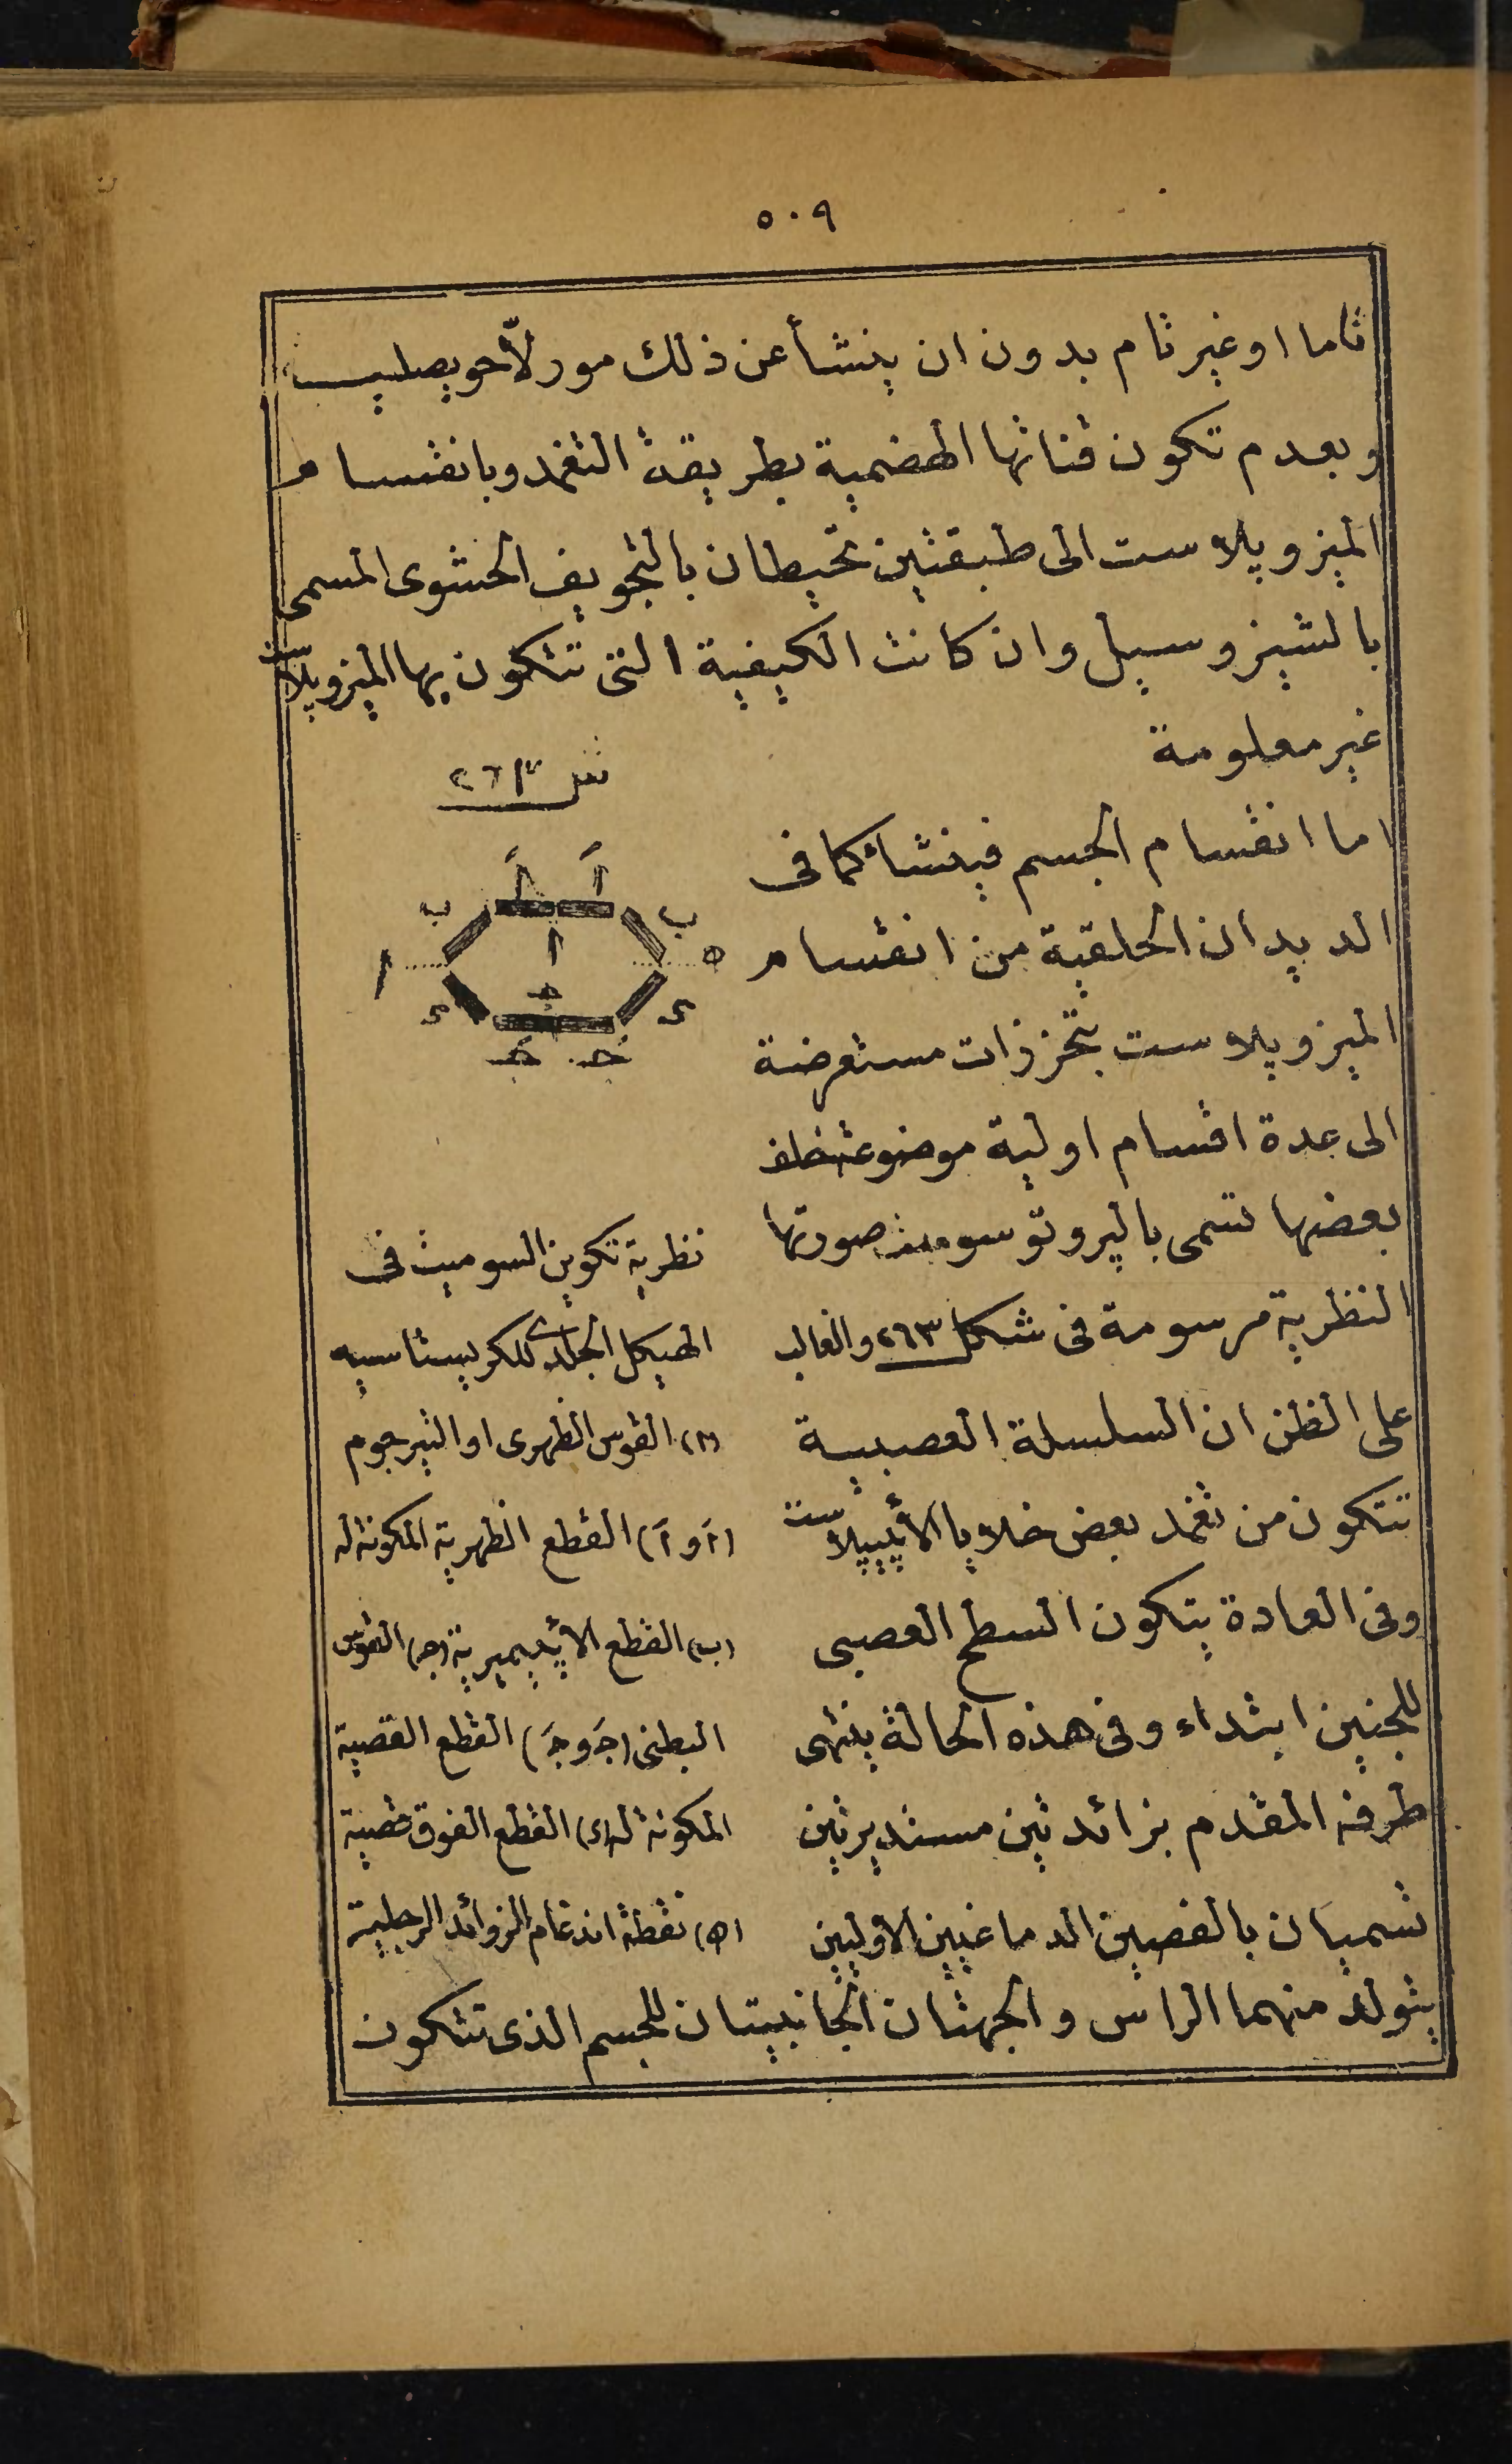 ٥٠٩
تاما او غير تام بدون ان ينشأ عن ذلك مورلّا حويصلية
وبعدم تكون قناتها الهضمية بطريقة التغمد وبانقسام
الميزوبلاست الى طبقتين تحيطان بالتجويف الحشوى المسمى
بالشيزوسيل وان كانت الكيفية التى تتكون بها الميزوبلاست
غير معلومة
اما انقسام الجسم فينشأ كما فى
الديدان الحلقية من انقسام
الميزوبلاست بتحززات مستعرضة
الى عدة اقسام اولية موضوعة خلف
بعضها تسمى بالپروتوسوميت صورتها
النظرية مرسومة فى شكل ٢٦٣ والغالب
على الظن ان السلسلة العصبية
تتكون من تغمد بعض خلايا الأپيبلاست
وفى العادة يتكون السطح العصبى
للجنين ابتداء وفى هذه الحالة ينتهى
طرفه المقدم بزائدتين مستديرتين
تسميان بالفصين الدماغيين الأوليين
يتولد منهما الراس والجهتان الجانبيتان للجسم الذى تتكون
شكل ٢٦٣
اَ اَ
ب ب
ا
ا ه
ج
ى ى
جَ جَ
نظرية تكوين السوميت فى
الهيكل الجلدى للكريستاسيه
(ا) القوس الظهرى او التيرجوم
(اَ و اَ) القطع الظهرية المكونة له
(ب) القطع الأپيميرية (ج) القوس
البطنى (جَ و جَ) القطع القصية
المكونة له (ى) القطع الفوق قصية
(ه) نقطة اندغام الزوائد الرجلية